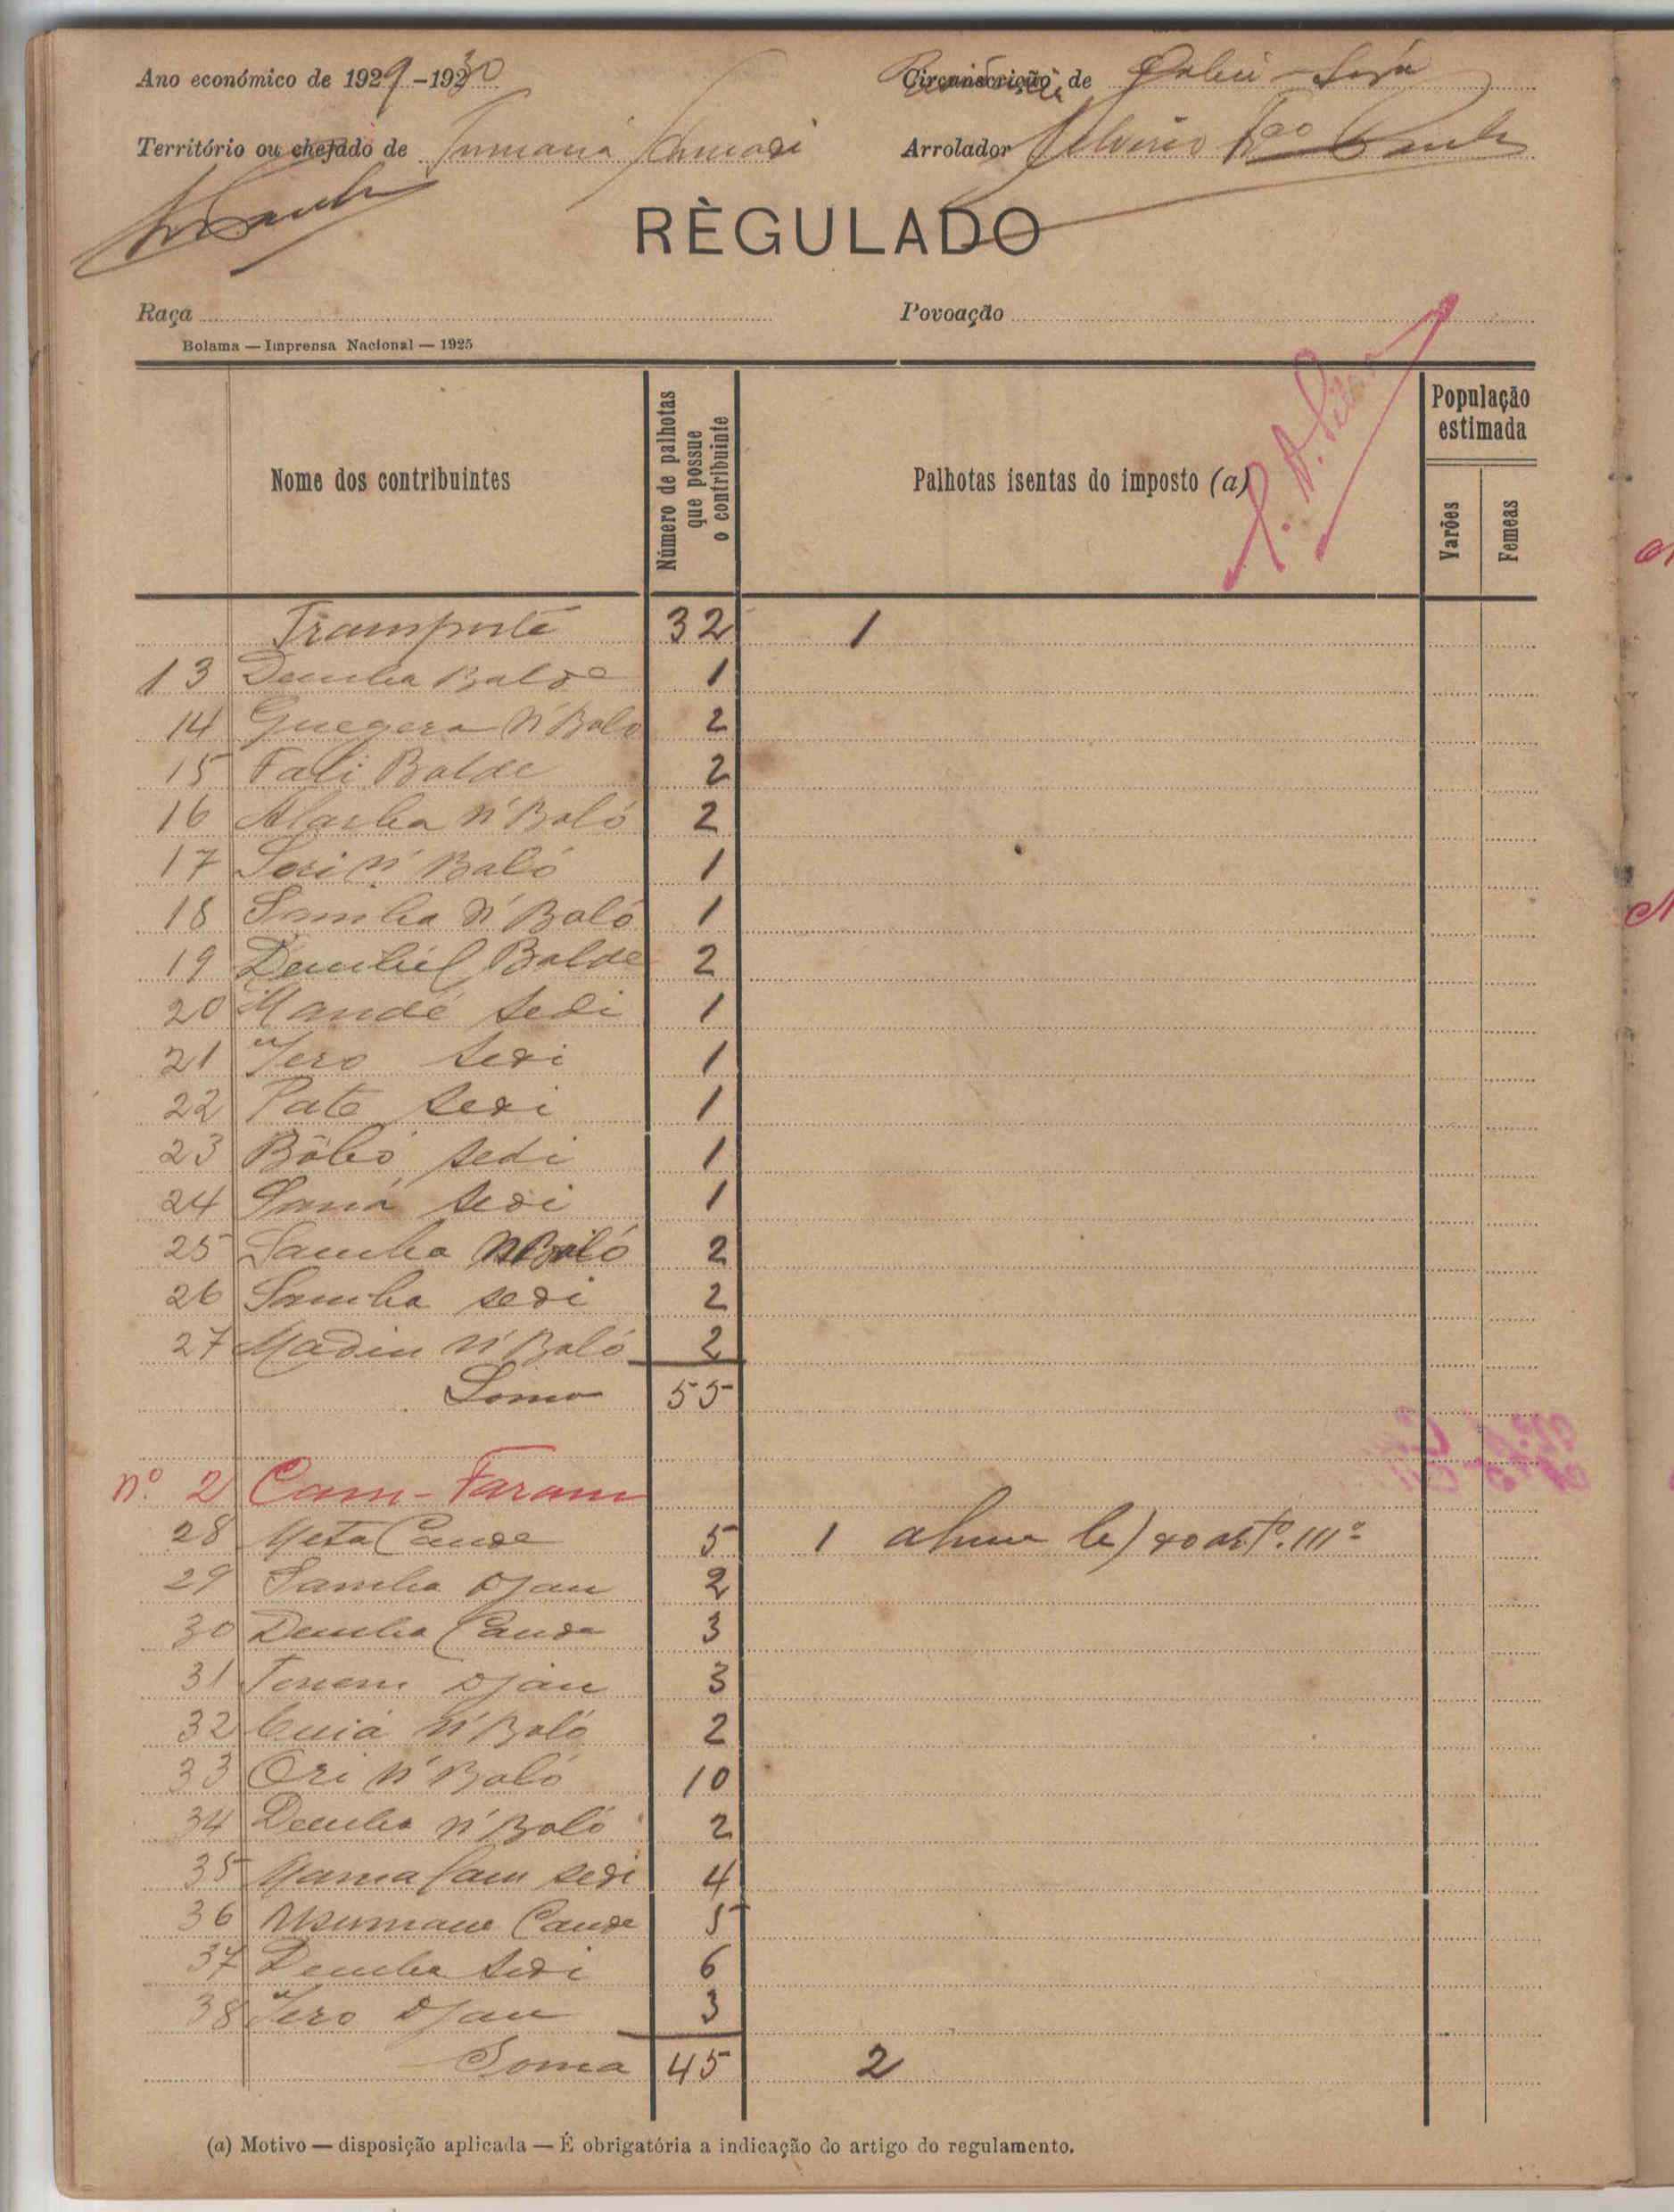 Ano económico de 1929-1930
Circunscrição de Gabú-
Território ou chefado de Tumaná
Arrolador
RÈGULADO
Raça
Povoação
Bolama — Imprensa Nacional — 1925
Nome dos contribuintes
Número de palhotas que possue o contribuinte
Palhotas isentas do imposto (a)
População estimada
Varões
Femeas
Transporte 32 1
13 Demba Balde 1
14 N'Balo 2
15 Fali Balde 2
16 N'Baló 2
17 Sori N'Baló 1
18 Samba N'Baló 1
19 Dembél Balde 2
20 Mandé Sedi 1
21 Iero Sedi 1
22 Pate Sedi 1
23 Bôbó Sedi 1
24 Saná Sedi 1
25 Samba N'Baló 2
26 Samba Sedi 2
27 Madiu N'Baló 2
Soma 55
nº 2 Cam-Faram
28 Meta Cande 5 1 do artº. 111º
29 Samba Djau 2
30 Demba Cande 3
31 Djau 3
32 Cuiá N'Baló 2
33 Ori N'Baló 10
34 Demba N'Baló 2
35 Sedi 4
36 Usumane Cande 5
37 Demba Sedi 6
38 Iero Djau 3
Soma 45 2
(a) Motivo — disposição aplicada — É obrigatória a indicação do artigo do regulamento.